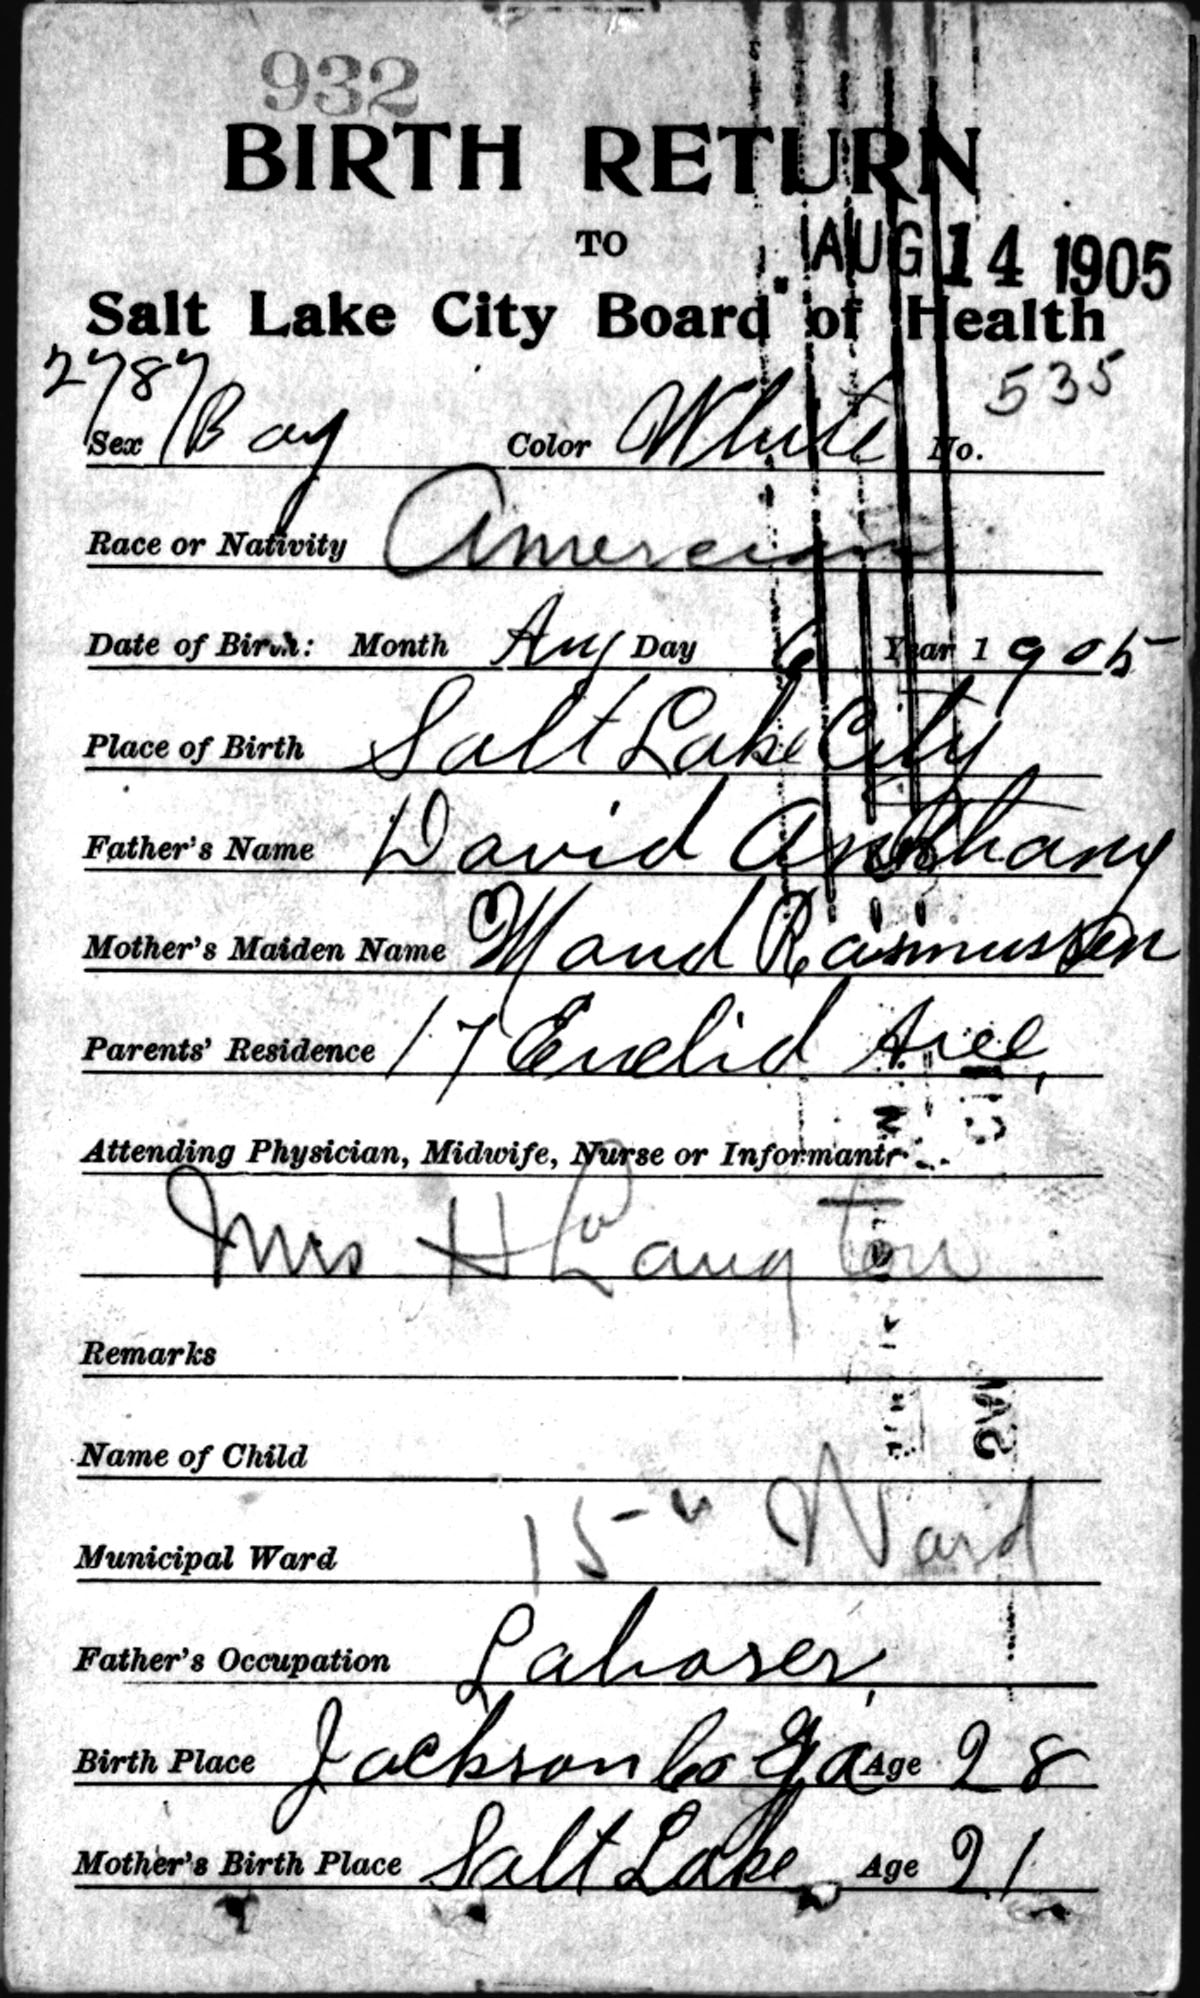 932
BIRTH RETURN
TO
AUG 14 1905
Salt Lake City Board of Health
2787 535
Sex Boy Color White No.
Race or Nativity Amercian
Date of Birth: Month Aug Day 6 Year 1905
Place of Birth Salt Lake City
Father's Name David Anthany
Mother's Maiden Name Maud Rasmussen
Parents' Residence 17 Euclid Ave,
Attending Physician, Midwife, Nurse or Informant
Mrs H Langton
Remarks
Name of Child
Municipal Ward 15 Ward
Father's Occupation Laborer,
Birth Place Jackson Co Ga Age 28
Mother's Birth Place Salt Lake Age 21